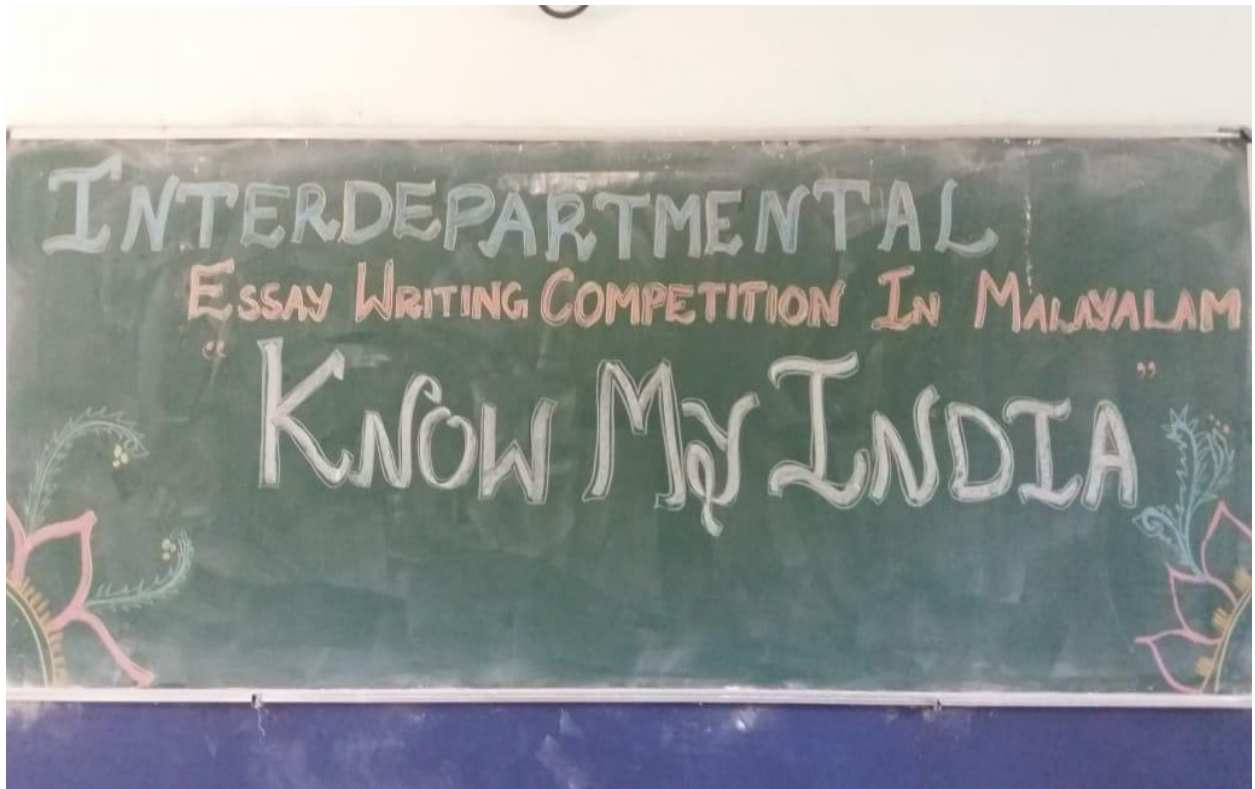 INTERDEPARTMENTAL
ESSAY WRITING COMPETITION IN MALAYALAM
"KNOW MY INDIA"